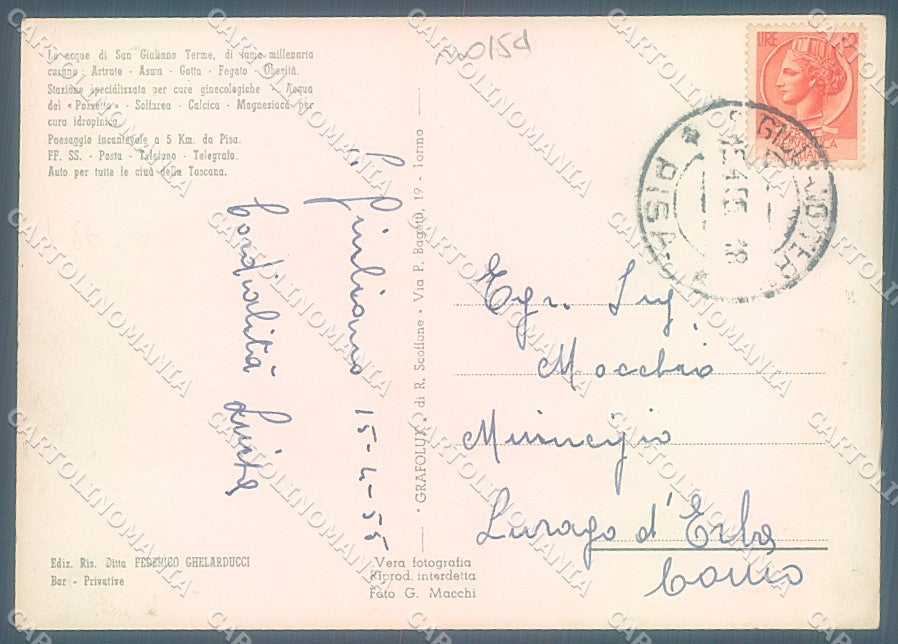 2015d
Le acque di San Giuliano Terme, di fama millenaria
curano: Artrite - Asma - Gotta - Fegato - Obesità.
Stazione specializzata per cure ginecologiche - Acqua
del «Pozzetto» - Solfarea - Calcica - Magnesiaca per
cura idropinica.
Paesaggio incantevole a 5 Km. da Pisa.
FF. SS. - Posta - Telefono - Telegrafo.
Auto per tutte le città della Toscana.
S. Giuliano 15-4-55
Cordialità
Luista
Ediz. Ris. Ditta FEDERICO GHELARDUCCI
Bar - Privative
"GRAFOLUX" di R. Scoffone - Via P. Bagetti, 19 - Torino
Vera fotografia
Riprod. interdetta
Foto G. Macchi
LIRE
REPVBBLICA
ITALIANA
S. GIULIANO TERME
PISA
15.4.55.18
Egr. Sig.
Macchio
Municipio
Lurago d'Erba
Como
CARTOLINOMANIA